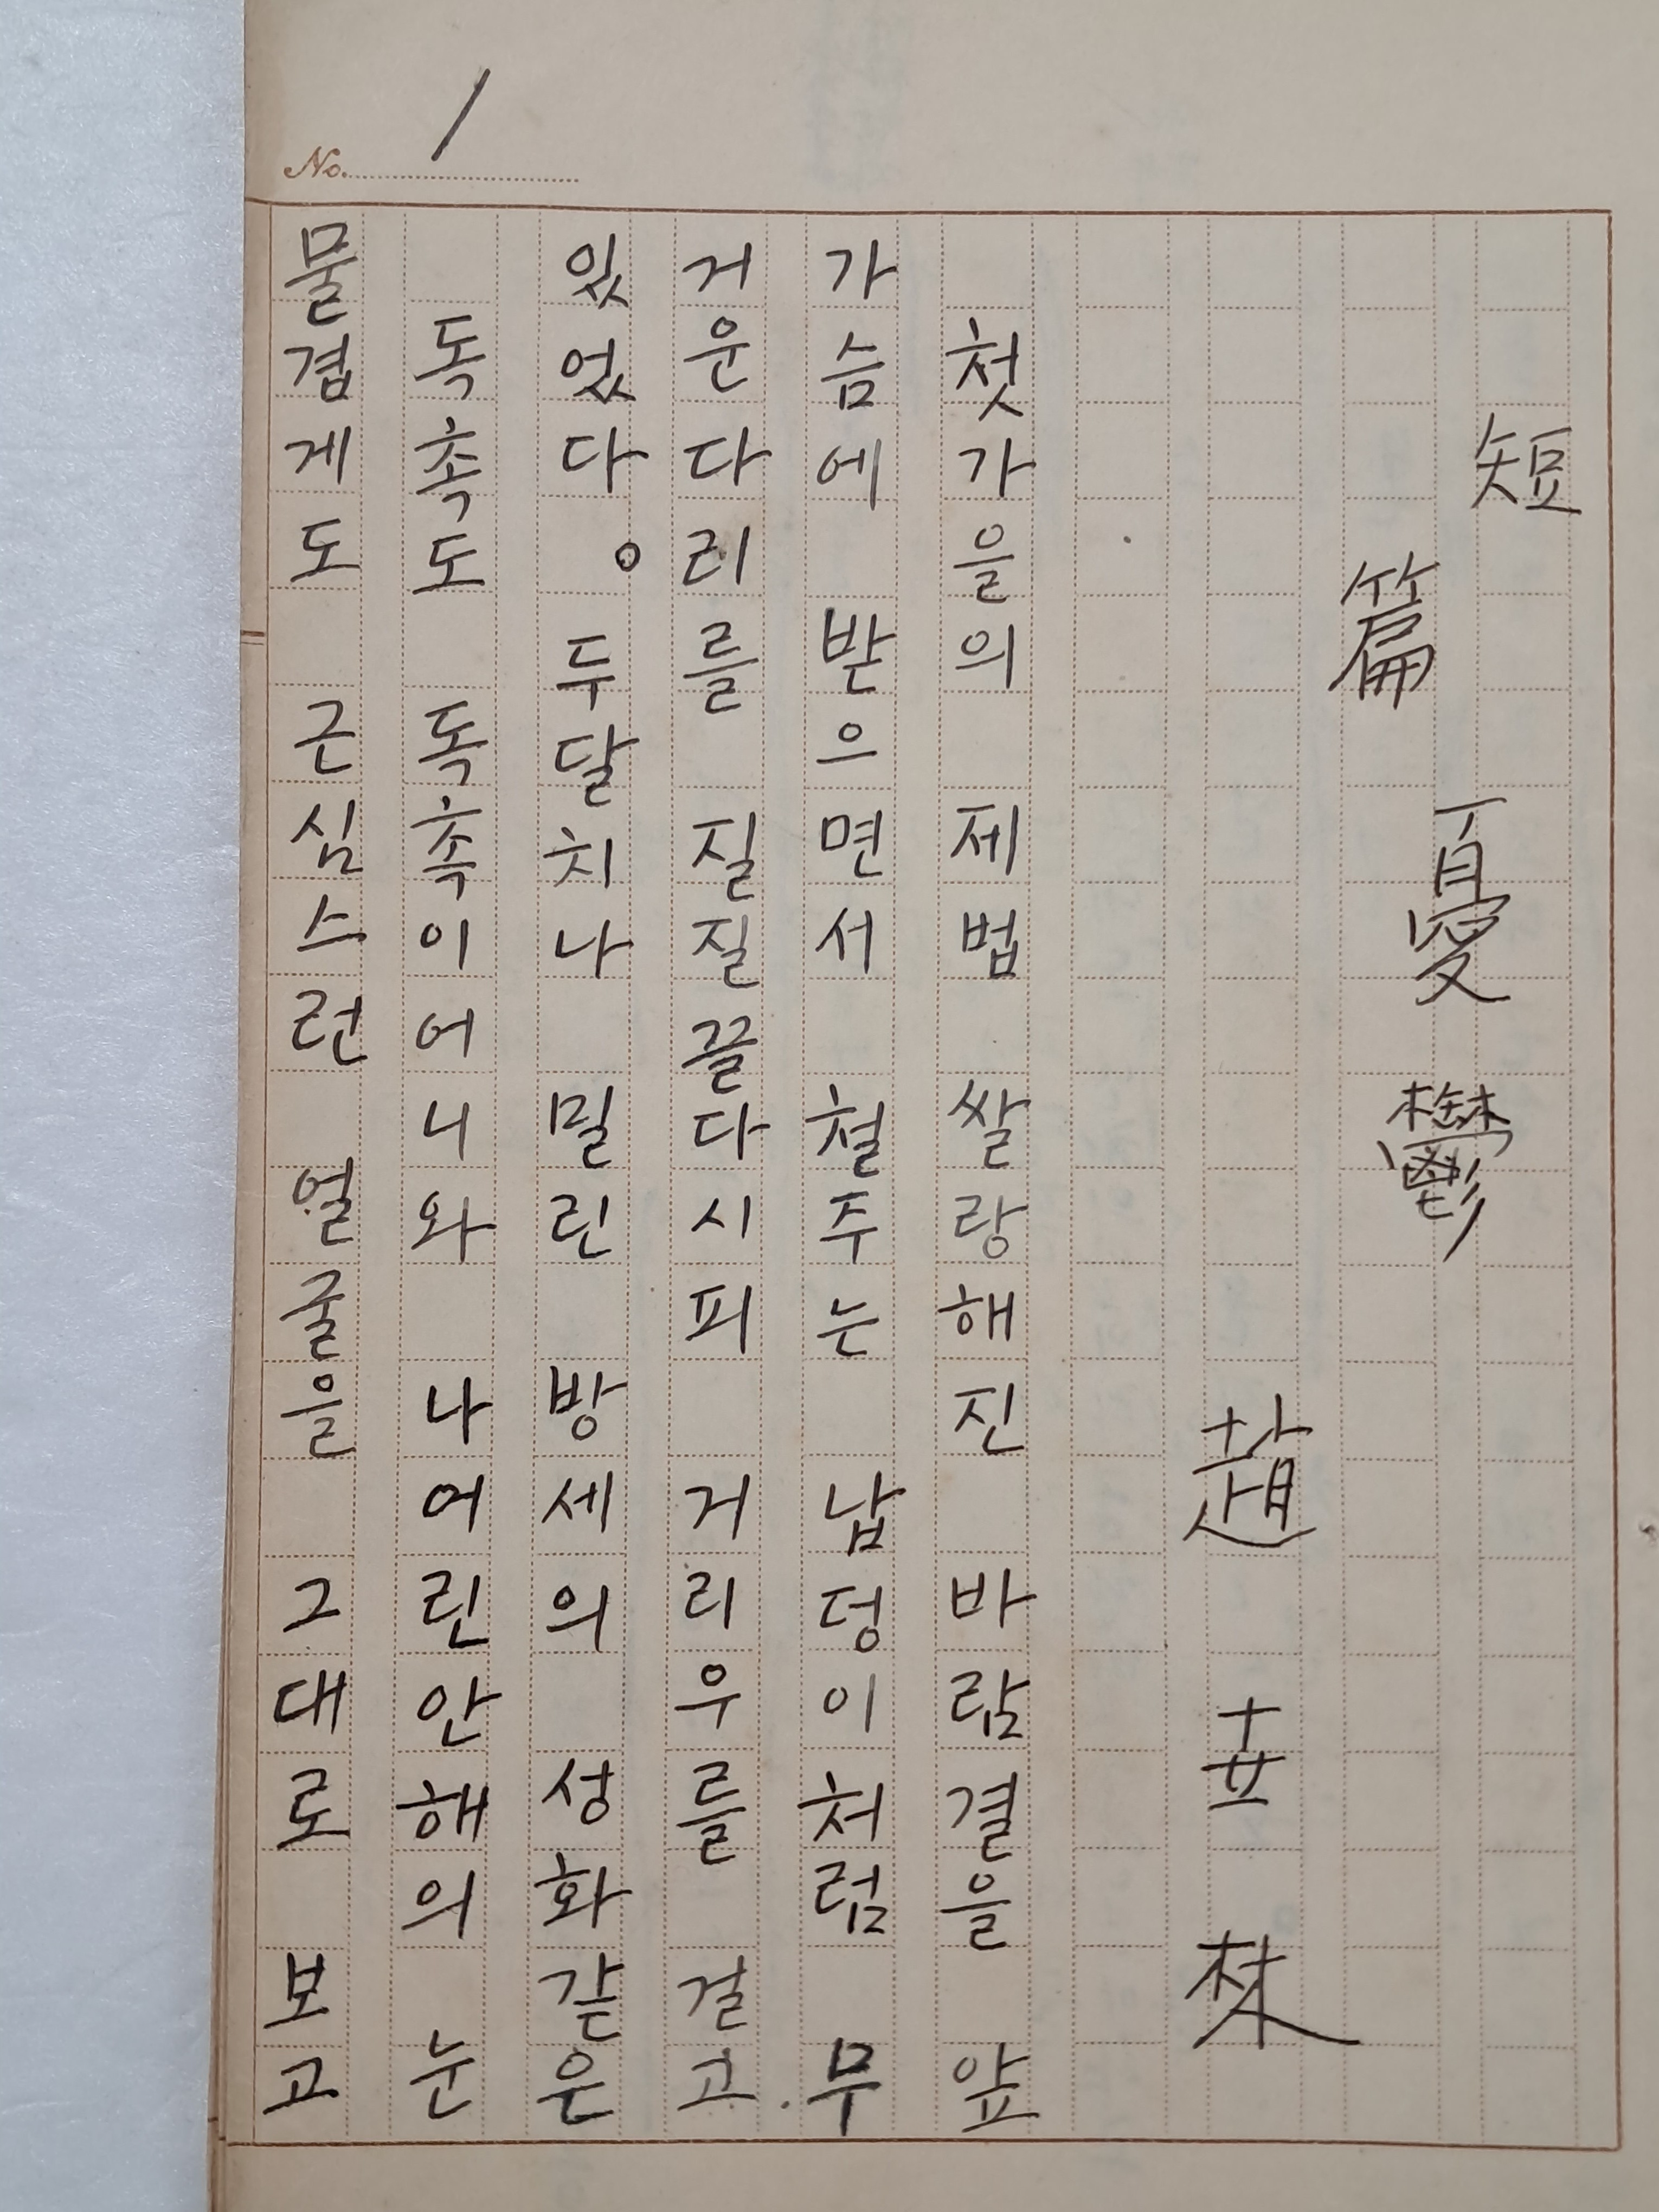 No. 1
短篇 憂鬱
趙
첫가을의 제법 쌀랑해진 바람결을 앞
가슴에 받으면서 철주는 납덩이처럼 무
거운다리를 질질끌다시피 거리우를 걸고
있었다。두달치나 밀린 방세의 성화같은
독촉도 독촉이어니와 나어린안해의 눈
물겹게도 근심스런 얼굴을 그대로 보고